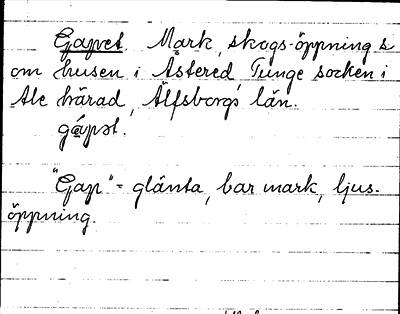 Gapet. Mark, skogs-öppning s
om husen i Åstered, Tunge socken i
Ale härad, Älfsborgs län.
gápət.
"Gap" = glänta, bar mark, ljus-
öppning.